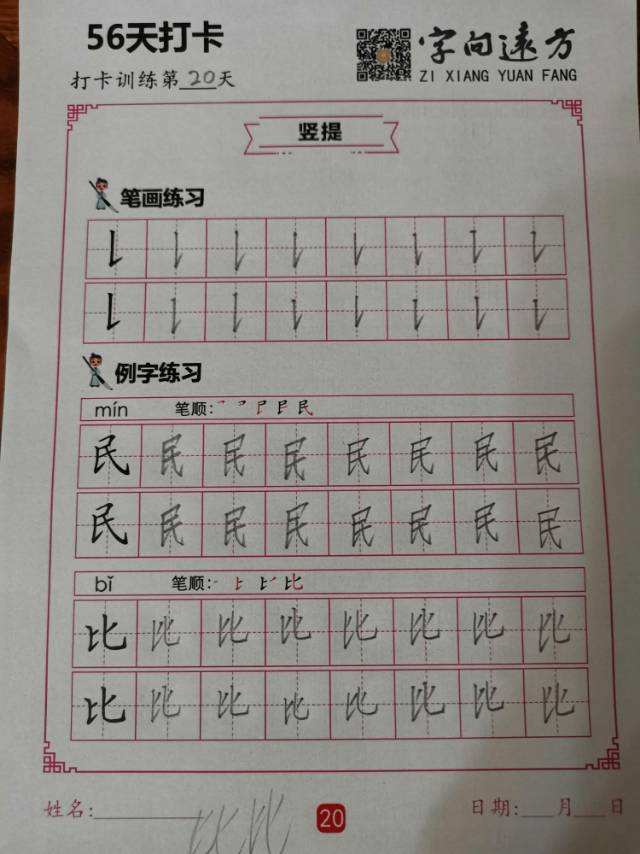 56天打卡
字向遠方
打卡训练第20天
ZI XIANG YUAN FANG
竖提
笔画练习
例字练习
mín 笔顺: 民
民民民民民民民民
民民民民民民民民
bǐ 笔顺: 比
比比比比比比比比
比比比比比比比比
姓名: 日期: 月 日
比比
20